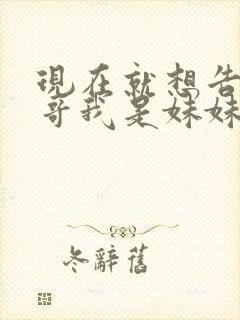 現在就想告
哥我是妹妹
冬辭舊